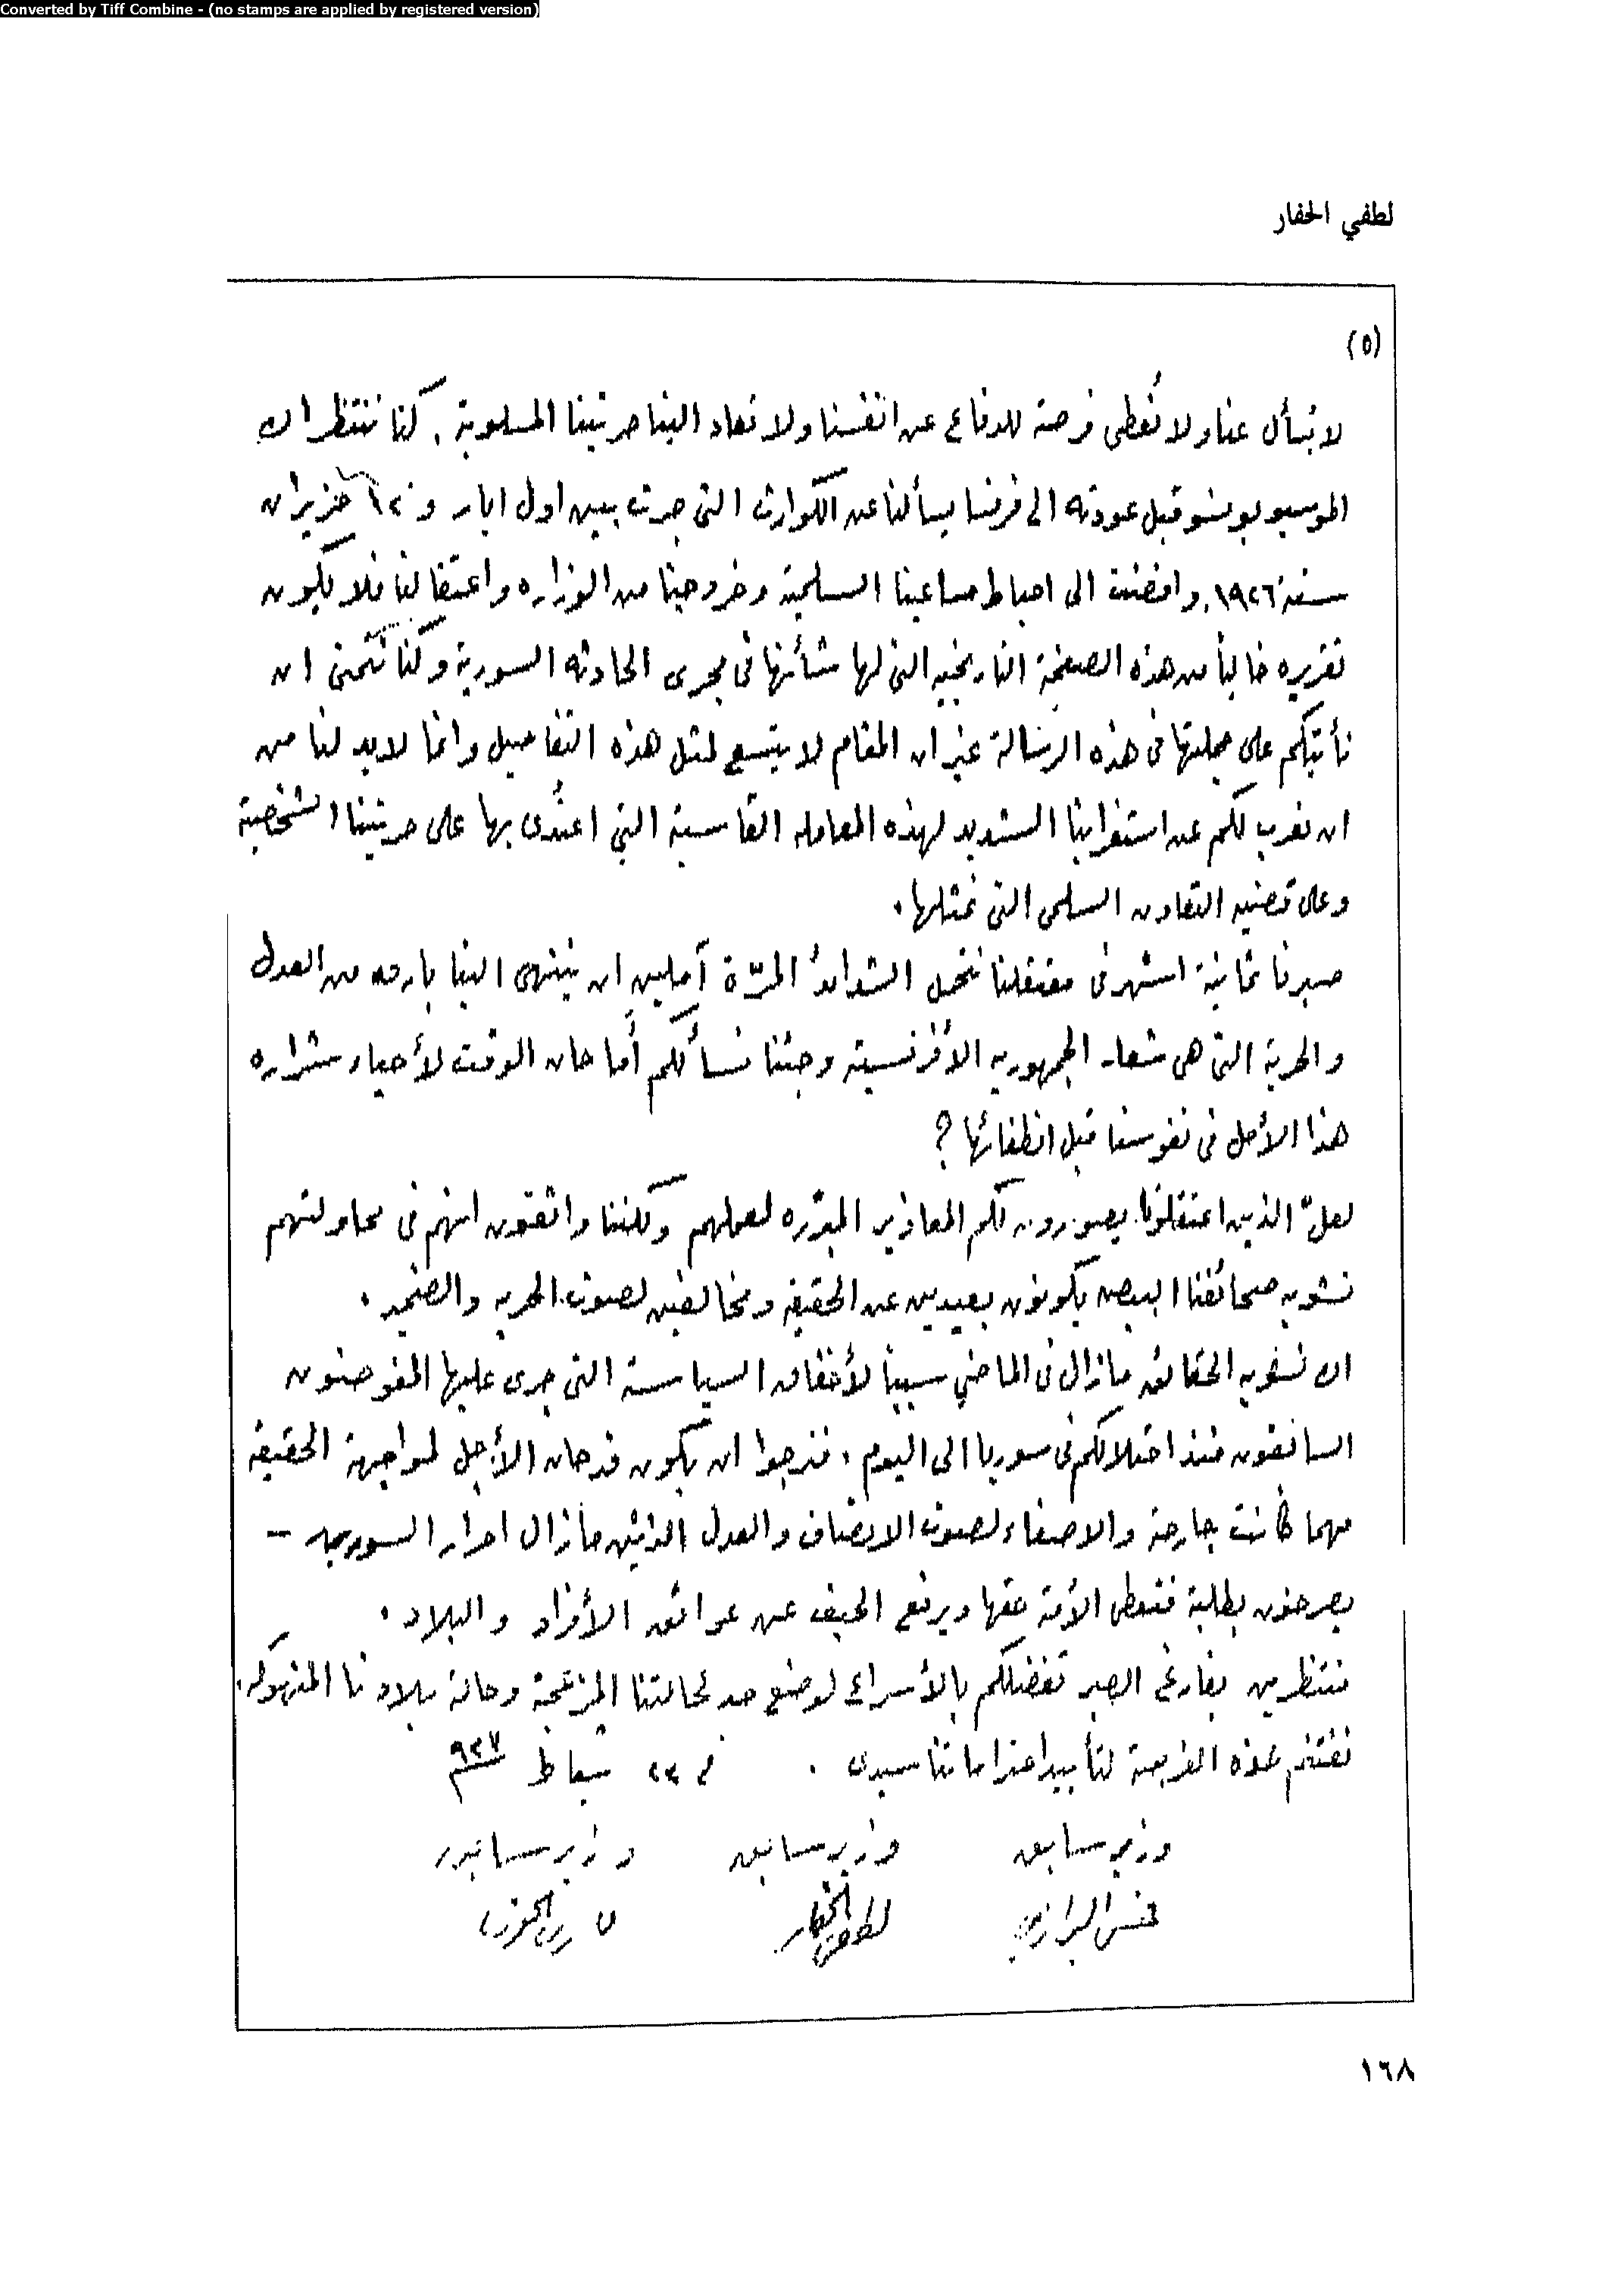 Converted by Tiff Combine - (no stamps are applied by registered version)
لطفي الحفار
(٥)
لا نسأل عنا ولا نُعطى فرصة للدفاع عن انفسنا ولا تعاد الينا حريتنا المسلوبة. كنا ننتظر ان
الموسيو بونسو قبل عودته الى فرنسا يسألنا عن الكوارث التي جرت بين اول ايار و ١٢ حزيران
سنة ١٩٢٦. وافضت الى احباط مساعينا السلمية وخروجنا من الوزاره واعتقالنا فلا يكون
تقريره خالياً من هذه الصفحة التاريخيه التي لها شأنها في مجرى الحادثه السورية وكنا نتمنى ان
نأتيكم على جملتها في هذه الرسالة غير ان المقام لا يتسع لمثل هذه التفاصيل وانما لابد لنا من
ان نعرب لكم عن استغرابنا الشديد لهذه المعامله القاسية التي اعتُدى بها على حريتنا الشخصية
وعلى قضيه التعاون السلمى التي نمثلها.
صبرنا ثمانية اشهر في معتقلنا نتحمل الشدائدُ المرّة آملين ان ينتهى الينا بارقه من العدل
والحرية التي هي شعار الجمهوريه الأفرنسية وجئنا نسألكم أَما حان الوقت لأحياء شراره
هذا الأمل في نفوسنا قبل انطفائها ؟
لعلّ الذين اعتقلونا يصورون لكم المعاذير المبرّره لعملهم ولكننا واثقون انهم في محاولتهم
تشويه صحائفنا البيض يكونون بعيدين عن الحقيقه ومخالفين لصوت الحريه والضمير.
ان تشويه الحقائق مازال في الماضي سبباً لأخفاق السياسة التي جرى عليها المفوضون
السابقون منذ احتلالكم في سوريا الى اليوم. فنرجوا ان يكون قد حان الأجل لمواجهة الحقيقة
مهما كانت جارحة والاصغاء لصوت الانصاف والعدل الذين مازال احرار السوريين -
يصرخون بطلبة فتعطى الأمة حقها ويرفع الحيف عن عواتق الأفراد والبلاد.
ننتظرين بفارغ الصبر تفضلكم بالأسراع لوضع حد لحالتنا المزعجة وحالة بلادنا المنهوكه.
نغتنم هذه الفرصة لتأييد احتراماتنا سيدى. في ٢٣ شباط ٩٢٧
وزير سابق وزير سابق وزير سابق
حسني البرازي لطفي الحفار فارس الخوري
١٦٨